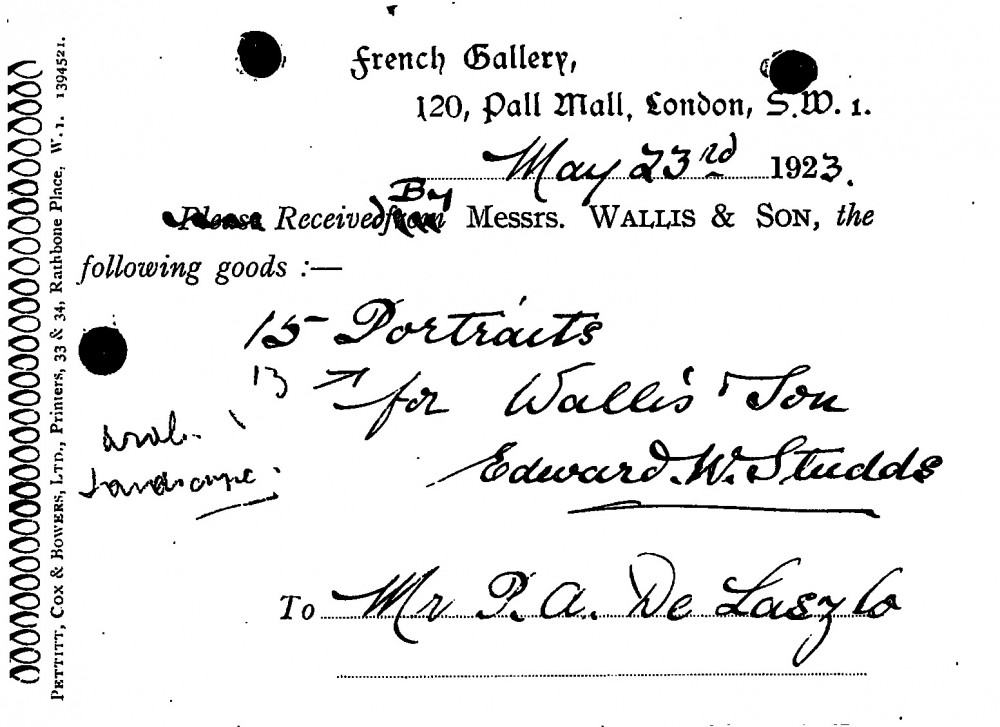 French Gallery,
120, Pall Mall, London, S.W. 1.
May 23rd 1923.
Please Received from By Messrs. WALLIS & SON, the
following goods :—
15 Portraits
13
for Wallis & Son
landscape.
Edward. W. Studds
To Mr P. A. De Laszlo
PETTITT, COX & BOWERS, LTD., Printers, 33 & 34, Rathbone Place, W. 1. 1394521.